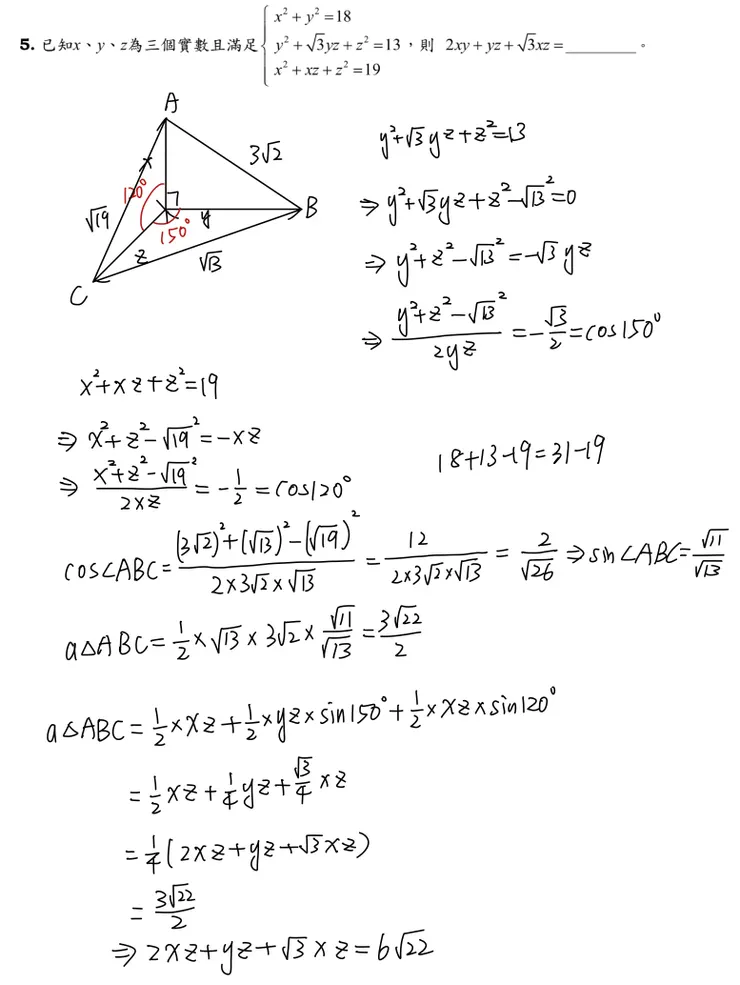 5. 已知x、y、z為三個實數且滿足{x²+y²=18
y²+√3yz+z²=13，則 2xy+yz+√3xz=________。
x²+xz+z²=19
A
x
3√2
120°
√19
y
B
150°
z
√13
C
y²+√3yz+z²=13
⇒y²+√3yz+z²-√13²=0
⇒y²+z²-√13²=-√3yz
⇒(y²+z²-√13²)/(2yz)=-√3/2=cos150°
x²+xz+z²=19
⇒x²+z²-√19²=-xz
⇒(x²+z²-√19²)/(2xz)=-1/2=cos120°
18+13-19=31-19
cos∠ABC=((3√2)²+(√13)²-(√19)²)/(2×3√2×√13)=12/(2×3√2×√13)=2/√26⇒sin∠ABC=√11/√13
a△ABC=1/2×√13×3√2×√11/√13=3√22/2
a△ABC=1/2×xz+1/2×yz×sin150°+1/2×xz×sin120°
=1/2xz+1/4yz+√3/4xz
=1/4(2xz+yz+√3xz)
=3√22/2
⇒2xz+yz+√3xz=6√22